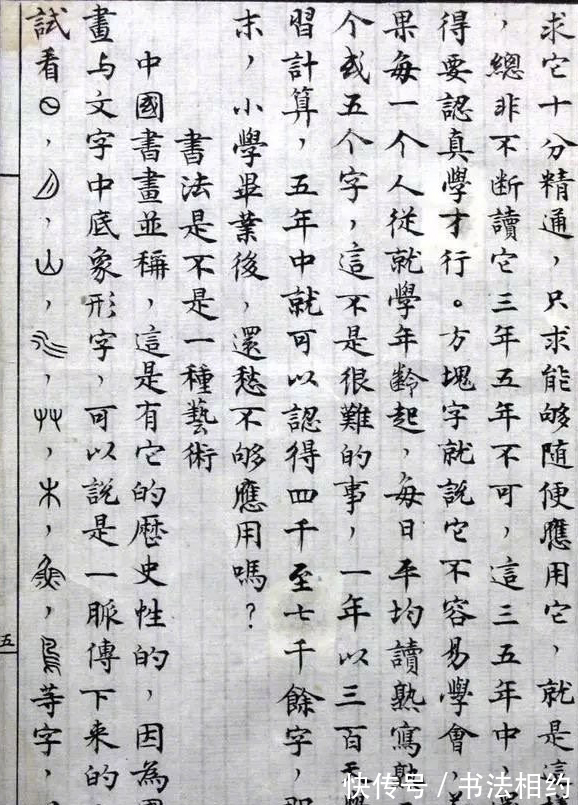 求它十分精通，只求能够随便應用它，就是這
，總非不断讀它三年五年不可，這三五年中，
得要認真學才行。方塊字就說它不容易學會，
果每一个人從就學年齡起，每日平均讀熟寫熟
个或五个字，這不是很難的事，一年以三百
習計算，五年中就可以認得四千至七千餘字，
末，小學畢業後，還愁不够應用嗎？
書法是不是一種藝術
中國書畫並稱，這是有它的歷史性的，因為
畫与文字中底象形字，可以說是一脈傳下来的
試看⊙，，山，，艸，木，，等字，
五
快传号／书法相约